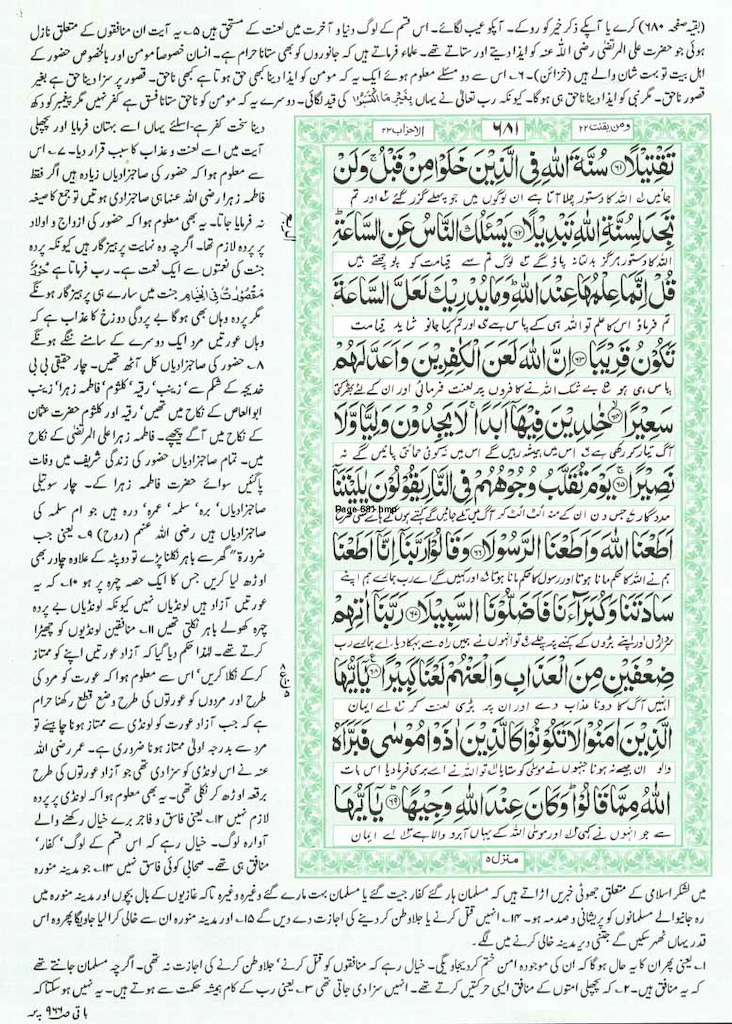 (بقیہ صفحہ ۶۸۰) کرے یا آپکے ذکر خیر کو روکے۔ آپکو عیب لگائے۔ اس قسم کے لوگ دنیا و آخرت میں لعنت کے مستحق ہیں ۵۔ یہ آیت ان منافقوں کے متعلق نازل
ہوئی جو حضرت علی المرتضٰی رضی اللہ عنہ کو ایذا دیتے اور ستاتے تھے۔ علماء فرماتے ہیں کہ جانوروں کو بھی ستانا حرام ہے۔ انسان خصوصاً مومن اور بالخصوص حضور کے
اہل بیت تو بہت شان والے ہیں (خزائن)۔ ۶۔ اس سے دو مسئلے معلوم ہوئے ایک یہ کہ مومن کو ایذا دینا کبھی حق ہوتا ہے کبھی ناحق۔ قصور پر سزا دینا حق ہے بغیر
قصور ناحق۔ مگر نبی کو ایذا دینا ناحق ہی ہوگا۔ کیونکہ رب تعالٰی نے یہاں بِغَيْرِ مَا اكْتَسَبُوْا کی قید لگائی۔ دوسرے یہ کہ مومن کو ناحق ستانا فسق ہے کفر نہیں مگر پیغمبر کو دکھ
دینا سخت کفر ہے۔ اسلئے یہاں اسے بہتان فرمایا اور پچھلی
آیت میں اسے لعنت و عذاب کا سبب قرار دیا۔ ۷۔ اس
سے معلوم ہوا کہ حضور کی صاحبزادیاں زیادہ ہیں اگر فقط
فاطمہ زہرا رضی اللہ عنہا ہی صاحبزادی ہوتیں تو جمع کا صیغہ
نہ فرمایا جاتا۔ یہ بھی معلوم ہوا کہ حضور کی ازواج و اولاد
پر پردہ لازم تھا۔ اگرچہ وہ نہایت پرہیزگار ہیں کیونکہ پردہ
جنت کی نعمتوں سے ایک نعمت ہے۔ رب فرماتا ہے حُوْرٌ
مَّقْصُوْرٰتٌ فِى الْخِيَامِ جنت میں سارے ہی پرہیزگار ہونگے
مگر پردہ وہاں بھی ہو گا بے پردگی دوزخ کا عذاب ہے کہ
وہاں عورتیں مرد ایک دوسرے کے سامنے ننگے ہونگے
۸۔ حضور کی صاحبزادیاں کل آٹھ تھیں۔ چار حقیقی بی بی
خدیجہ کے شکم سے، زینب، رقیہ، کلثوم، فاطمہ زہرا، زینب
ابو العاص کے نکاح میں تھیں، رقیہ اور کلثوم حضرت عثمان
کے نکاح میں آگے پیچھے۔ فاطمہ زہرا علی المرتضٰی کے نکاح
میں۔ تمام صاحبزادیاں حضور کی زندگی شریف میں وفات
پاگئیں سوائے حضرت فاطمہ زہرا کے۔ چار سوتیلی
صاحبزادیاں، برہ، سلمہ، عمرہ، درہ ہیں جو ام سلمہ کی
صاحبزادیاں ہیں رضی اللہ عنہم (روح) ۹۔ یعنی جب
ضرورۃً گھر سے باہر نکلنا پڑے تو دوپٹہ کے علاوہ چادر بھی
اوڑھ لیا کریں جس کا ایک حصہ چہرہ پر ہو ۱۰۔ کہ یہ
عورتیں آزاد ہیں لونڈیاں نہیں کیونکہ لونڈیاں بے پردہ
چہرہ کھولے باہر نکلتی تھیں ۱۱۔ منافقین لونڈیوں کو چھیڑا
کرتے تھے۔ لہٰذا حکم دیا گیا کہ آزاد عورتیں اپنے کو ممتاز
کر کے نکلا کریں، اس سے معلوم ہوا کہ عورت کو مرد کی
طرح اور مردوں کو عورتوں کی طرح وضع قطع رکھنا حرام
ہے کہ جب آزاد عورت کو لونڈی سے ممتاز ہونا چاہیئے تو
مرد سے بدرجہ اولٰی ممتاز ہونا ضروری ہے۔ عمر رضی اللہ
عنہ نے اس لونڈی کو سزا دی تھی جو آزاد عورتوں کی طرح
برقعہ اوڑھ کر نکلی تھی۔ یہ بھی معلوم ہوا کہ لونڈی پر پردہ
لازم نہیں ۱۲۔ یعنی فاسق و فاجر برے خیال رکھنے والے
آوارہ لوگ۔ خیال رہے کہ اس قسم کے لوگ، کفار،
منافق ہی تھے۔ صحابی کوئی فاسق نہیں ۱۳۔ جو مدینہ منورہ
ومن یقنت ۲۲
۶۸۱
الاحزاب ۳۳
تَقْتِيْلًا ۝۶۱ سُنَّةَ اللّٰهِ فِى الَّذِيْنَ خَلَوْا مِنْ قَبْلُ ۚ وَلَنْ
جائیں اللہ کا دستور چلا آتا ہے ان لوگوں میں جو پہلے گزر گئے اور تم
تَجِدَ لِسُنَّةِ اللّٰهِ تَبْدِيْلًا ۝۶۲ يَسْـَٔلُكَ النَّاسُ عَنِ السَّاعَةِ ؕ
اللہ کا دستور ہرگز بدلتا نہ پاؤ گے لوگ تم سے قیامت کو پوچھتے ہیں
قُلْ اِنَّمَا عِلْمُهَا عِنْدَ اللّٰهِ ؕ وَمَا يُدْرِيْكَ لَعَلَّ السَّاعَةَ
تم فرماؤ اس کا علم تو اللہ ہی کے پاس ہے اور تم کیا جانو شاید قیامت
تَكُوْنُ قَرِيْبًا ۝۶۳ اِنَّ اللّٰهَ لَعَنَ الْكٰفِرِيْنَ وَاَعَدَّ لَهُمْ
پاس ہی ہو بے شک اللہ نے کافروں پر لعنت فرمائی اور ان کے لئے بھڑکتی
سَعِيْرًا ۝۶۴ خٰلِدِيْنَ فِيْهَاۤ اَبَدًا ۚ لَا يَجِدُوْنَ وَلِيًّا وَّلَا
آگ تیار کر رکھی ہے اس میں ہمیشہ رہیں گے اس میں نہ کوئی حمائتی پائیں گے نہ
نَصِيْرًا ۝۶۵ يَوْمَ تُقَلَّبُ وُجُوْهُهُمْ فِى النَّارِ يَقُوْلُوْنَ يٰلَيْتَنَاۤ
مددگار جس دن ان کے منہ الٹ الٹ کر آگ میں تلے جائیں گے کہتے ہوں گے ہائے کسی طرح
Page 681.bmp
اَطَعْنَا اللّٰهَ وَاَطَعْنَا الرَّسُوْلَا ۝۶۶ وَقَالُوْا رَبَّنَاۤ اِنَّاۤ اَطَعْنَا
ہم نے اللہ کا حکم مانا ہوتا اور رسول کا حکم مانا ہوتا اور کہیں گے اے رب ہمارے ہم اپنے
سَادَتَنَا وَكُبَرَآءَنَا فَاَضَلُّوْنَا السَّبِيْلَا ۝۶۷ رَبَّنَاۤ اٰتِهِمْ
سرداروں اور اپنے بڑوں کے کہنے پر چلے تو انہوں نے ہمیں راہ سے بہکا دیا، اے ہمارے رب
ضِعْفَيْنِ مِنَ الْعَذَابِ وَالْعَنْهُمْ لَعْنًا كَبِيْرًا ۝۶۸ يٰۤاَيُّهَا
انہیں آگ کا دونا عذاب دے اور ان پر بڑی لعنت کر اے ایمان
الَّذِيْنَ اٰمَنُوْا لَا تَكُوْنُوْا كَالَّذِيْنَ اٰذَوْا مُوْسٰى فَبَرَّاَهُ
والو ان جیسے نہ ہونا جنہوں نے موسٰی کو ستایا تو اللہ نے اسے بری فرما دیا اس بات
اللّٰهُ مِمَّا قَالُوْا ؕ وَكَانَ عِنْدَ اللّٰهِ وَجِيْهًا ۝۶۹ يٰۤاَيُّهَا
سے جو انہوں نے کہی اور موسٰی اللہ کے یہاں آبرو والا ہے اے ایمان
منزل ۵
میں لشکر اسلامی کے متعلق جھوٹی خبریں اڑاتے ہیں کہ مسلمان ہار گئے کفار جیت گئے یا مسلمان بہت مارے گئے وغیرہ وغیرہ تاکہ غازیوں کے بال بچوں اور مدینہ منورہ میں
رہ جانیوالے مسلمانوں کو پریشانی و صدمہ ہو۔ ۱۴۔ انہیں قتل کرنے یا جلاوطن کر دینے کی اجازت دے دیں گے ۱۵۔ اور مدینہ منورہ ان سے خالی کرا لیا جاویگا پھر وہ اس
قدر یہاں ٹھہر سکیں گے جتنی دیر مدینہ خالی کرنے میں لگے۔
۱۔ یعنی پھر ان کا یہ حال ہو گا کہ ان کی موجودہ امن ختم کر دیجاویگی۔ خیال رہے کہ منافقوں کو قتل کرنے، جلاوطن کرنے کی اجازت نہ تھی۔ اگرچہ مسلمان جانتے تھے
کہ یہ منافق ہیں۔ ۲۔ کہ پچھلی امتوں کے منافق ایسی حرکتیں کرتے تھے۔ انہیں سزا دی جاتی تھی ۳۔ یعنی رب کے کام ہمیشہ حکمت سے ہوتے ہیں۔ یہ نہیں ہو سکتا کہ
باقی ص ۹۶۶ پر